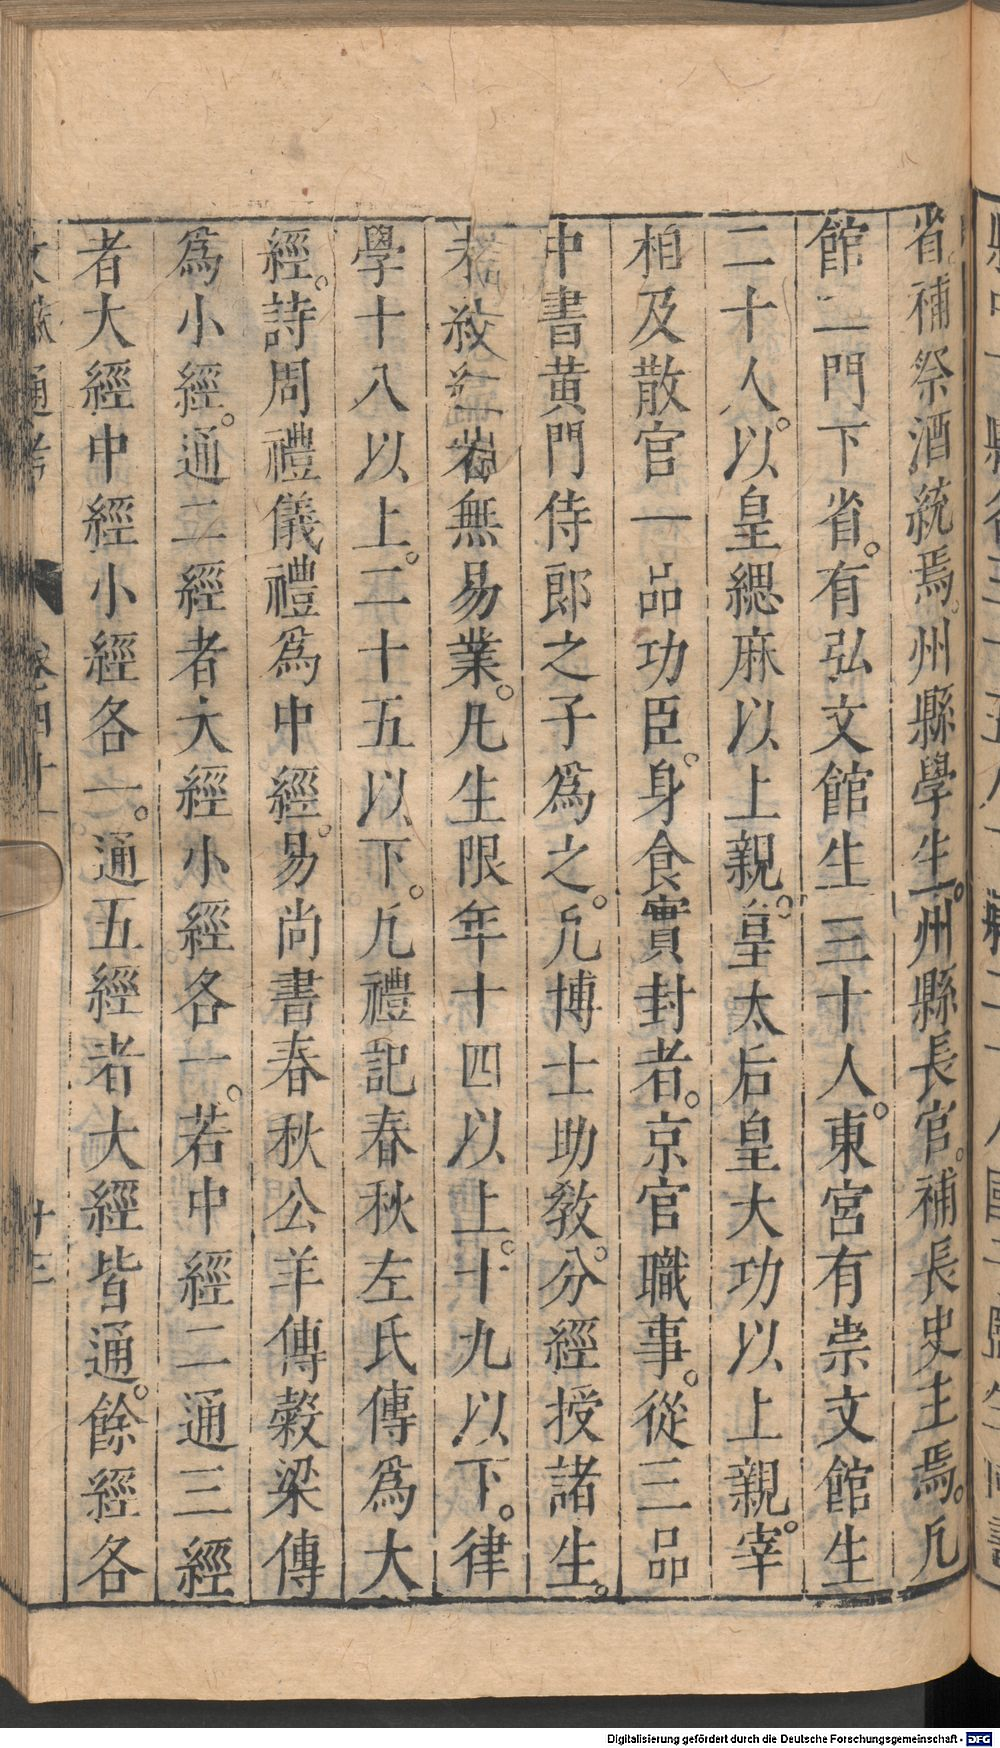 省。補祭酒統焉。州縣學生。州縣長官。補長史主焉。凡
館二門下省。有弘文館生三十人。東宮有崇文館生
二十人。以皇緦麻以上親。皇太后皇大功以上親。宰
相及散官一品功臣。身食實封者。京官職事。從三品
中書黃門侍郎之子爲之。凡博士助教。分經授諸生。
未終經者無易業。凡生限年十四以上。十九以下。律
學十八以上。二十五以下。凡禮記春秋左氏傳爲大
經。詩周禮儀禮爲中經。易尚書春秋公羊傳榖梁傳
爲小經。通二經者大經小經各一。若中經二通三經
者大經中經小經各一。通五經者大經皆通。餘經各
通考 卷四十一 十三
Digitalisierung gefördert durch die Deutsche Forschungsgemeinschaft - DFG